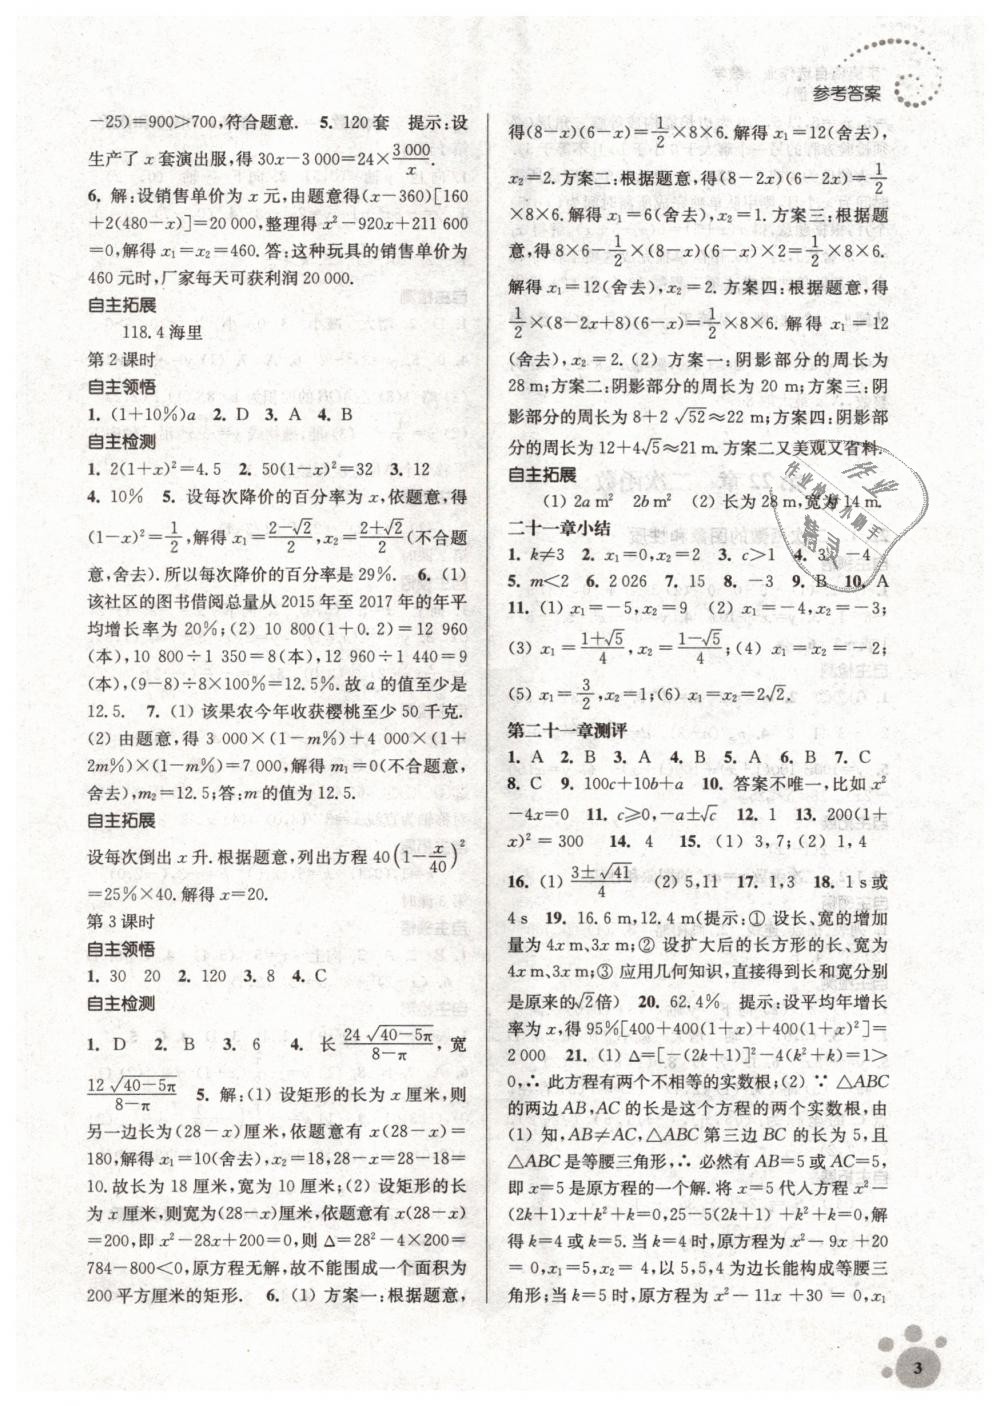 参考答案
－25)＝900＞700,符合题意. 5. 120 套 提示:设
生产了 x 套演出服,得 30x－3 000＝24×3 000/x.
6. 解:设销售单价为 x 元,由题意得(x－360)[160
＋2(480－x)]＝20 000,整理得 x²－920x＋211 600
＝0,解得 x₁＝x₂＝460. 答:这种玩具的销售单价为
460 元时,厂家每天可获利润 20 000.
自主拓展
118.4 海里
第 2 课时
自主领悟
1. (1＋10%)a 2. D 3. A 4. B
自主检测
1. 2(1＋x)²＝4.5 2. 50(1－x)²＝32 3. 12
4. 10% 5. 设每次降价的百分率为 x,依题意,得
(1－x)²＝1/2,解得 x₁＝(2－√2)/2,x₂＝(2＋√2)/2(不合题
意,舍去). 所以每次降价的百分率是 29%. 6. (1)
该社区的图书借阅总量从 2015 年至 2017 年的年平
均增长率为 20%;(2) 10 800(1＋0.2)＝12 960
(本),10 800÷1 350＝8(本),12 960÷1 440＝9
(本),(9－8)÷8×100%＝12.5%. 故 a 的值至少是
12.5. 7. (1) 该果农今年收获樱桃至少 50 千克.
(2) 由题意,得 3 000×(1－m%)＋4 000×(1＋
2m%)×(1－m%)＝7 000,解得 m₁＝0(不合题意,
舍去),m₂＝12.5;答:m 的值为 12.5.
自主拓展
设每次倒出 x 升. 根据题意,列出方程 40(1－x/40)²
＝25%×40. 解得 x＝20.
第 3 课时
自主领悟
1. 30 20 2. 120 3. 8 4. C
自主检测
1. D 2. B 3. 6 4. 长 24√(40－5π)/(8－π),宽
12√(40－5π)/(8－π) 5. 解:(1) 设矩形的长为 x 厘米,则
另一边长为(28－x)厘米,依题意有 x(28－x)＝
180,解得 x₁＝10(舍去),x₂＝18,28－x＝28－18＝
10. 故长为 18 厘米,宽为 10 厘米;(2) 设矩形的长
为 x 厘米,则宽为(28－x)厘米,依题意有 x(28－x)
＝200,即 x²－28x＋200＝0,则 Δ＝28²－4×200＝
784－800＜0,原方程无解,故不能围成一个面积为
200 平方厘米的矩形. 6. (1) 方案一:根据题意,
得(8－x)(6－x)＝1/2×8×6. 解得 x₁＝12(舍去),
x₂＝2. 方案二:根据题意,得(8－2x)(6－2x)＝1/2
×8×6. 解得 x₁＝6(舍去),x₂＝1. 方案三:根据题
意,得 8×6－1/2×(8－x)(6－x)×2＝1/2×8×6.
解得 x₁＝12(舍去),x₂＝2. 方案四:根据题意,得
1/2×(8－2x＋8)(6－x)＝1/2×8×6. 解得 x₁＝12
(舍去),x₂＝2. (2) 方案一:阴影部分的周长为
28 m;方案二:阴影部分的周长为 20 m;方案三:阴
影部分的周长为 8＋2√52≈22 m;方案四:阴影部
分的周长为 12＋4√5≈21 m. 方案二又美观又省料.
自主拓展
(1) 2a m² 2b m² (2) 长为 28 m,宽为 14 m.
二十一章小结
1. k≠3 2. x₁＝0,x₂＝2 3. c＞1 4. 3 －4
5. m＜2 6. 2 026 7. 15 8. －3 9. B 10. A
11. (1) x₁＝－5,x₂＝9 (2) x₁＝－4,x₂＝－3;
(3) x₁＝(1＋√5)/4,x₂＝(1－√5)/4;(4) x₁＝x₂＝－2;
(5) x₁＝3/2,x₂＝1;(6) x₁＝x₂＝2√2.
第二十一章测评
1. A 2. B 3. A 4. B 5. A 6. B 7. C
8. C 9. 100c＋10b＋a 10. 答案不唯一,比如 x²
－4x＝0 11. c≥0,－a±√c 12. 1 13. 200(1＋
x)²＝300 14. 4 15. (1) 3,7;(2) 1,4
16. (1) (3±√41)/4 (2) 5,11 17. 1,3 18. 1 s或
4 s 19. 16.6 m,12.4 m(提示:① 设长、宽的增加
量为 4x m、3x m;② 设扩大后的长方形的长、宽为
4x m、3x m;③ 应用几何知识,直接得到长和宽分别
是原来的√2倍) 20. 62.4% 提示:设平均年增长
率为 x,得 95%[400＋400(1＋x)＋400(1＋x)²]＝
2 000 21. (1) Δ＝[－(2k＋1)]²－4(k²＋k)＝1＞
0,∴ 此方程有两个不相等的实数根;(2) ∵ △ABC
的两边 AB,AC 的长是这个方程的两个实数根,由
(1) 知,AB≠AC,△ABC 第三边 BC 的长为 5,且
△ABC 是等腰三角形,∴ 必然有 AB＝5 或 AC＝5,
即 x＝5 是原方程的一个解. 将 x＝5 代入方程 x²－
(2k＋1)x＋k²＋k＝0,25－5(2k＋1)＋k²＋k＝0,解
得 k＝4 或 k＝5. 当 k＝4 时,原方程为 x²－9x＋20
＝0,x₁＝5,x₂＝4,以 5,5,4 为边长能构成等腰三
角形;当 k＝5 时,原方程为 x²－11x＋30＝0,x₁
作业
作业检查小助手
精灵
3